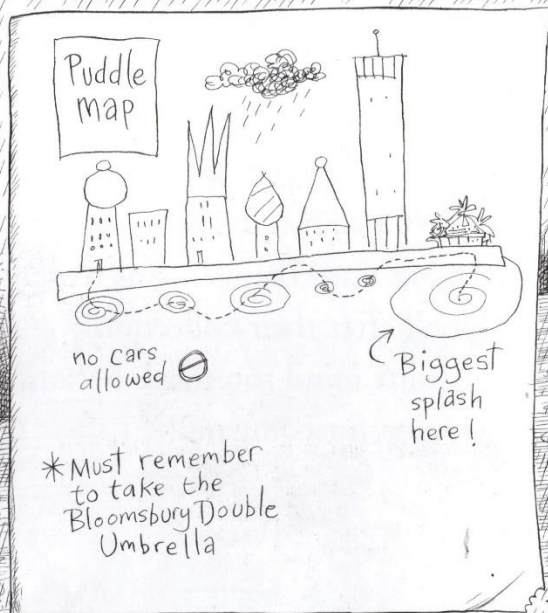 Puddle
map
no cars
allowed
Biggest
splash
here!
*Must remember
to take the
Bloomsbury Double
Umbrella